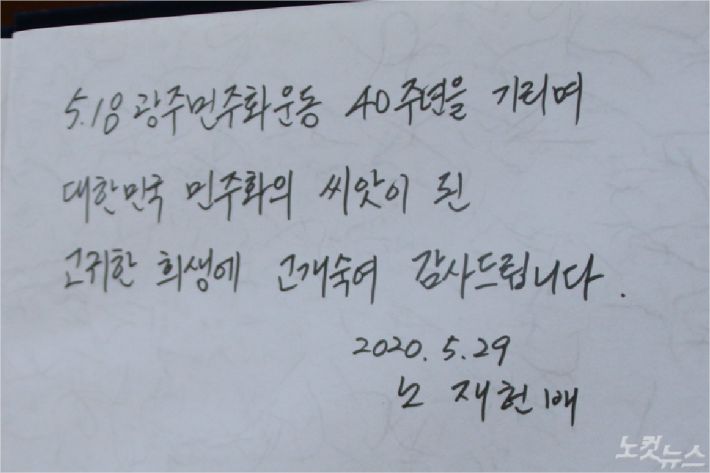 5.18 광주민주화운동 40주년을 기리며
대한민국 민주화의 씨앗이 된
고귀한 희생에 고개숙여 감사드립니다.
2020.5.29
노재헌 배
노컷뉴스